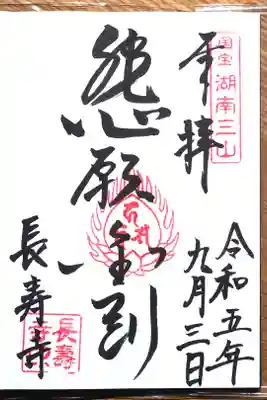 国宝 湖南三山
奉拝
令和五年
九月三日
悲願金剛
長寿寺
長壽